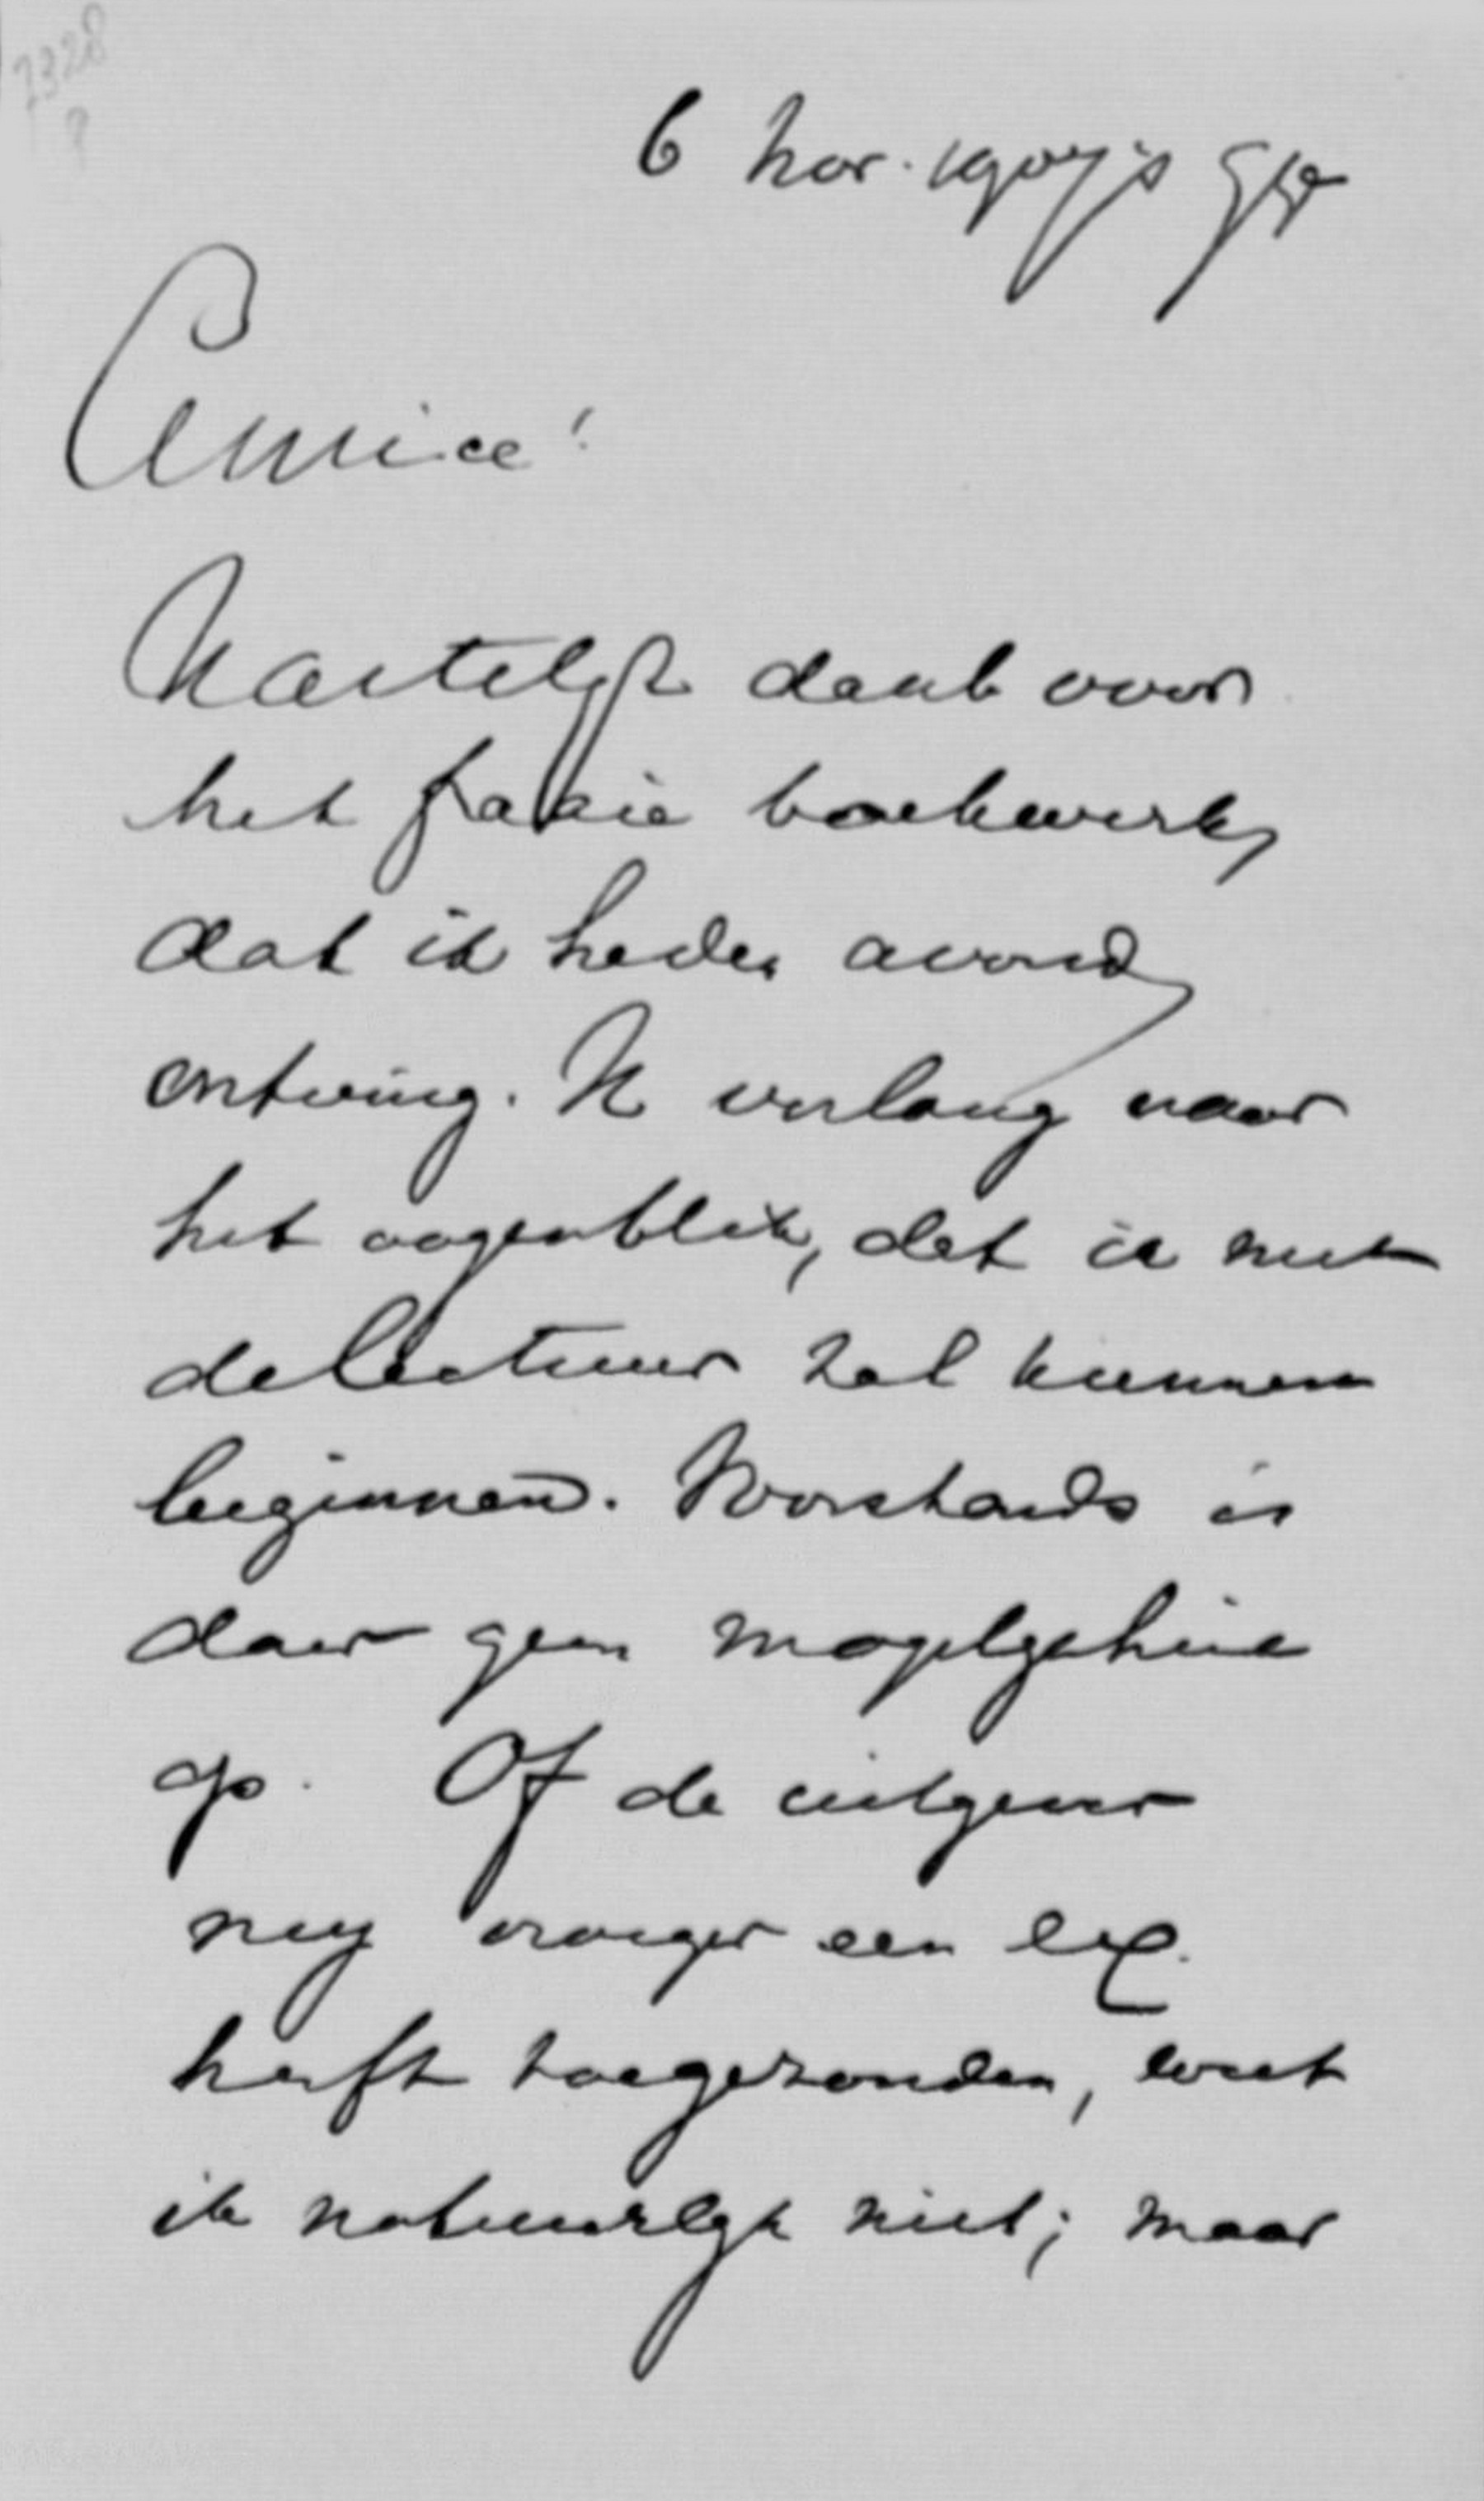 7328
?
6 Nov. 1907
Amice!
Hartelijk dank voor
het fraaie boekwerk,
dat ik heden avond
ontving. Ik verlang naar
het oogenblik, dat ik met
de lectuur zal kunnen
beginnen. Voorshands is
daar geen mogelijkheid
op. Of de uitgever
mij vroeger een ex.
heeft toegezonden, weet
ik natuurlijk niet; maar